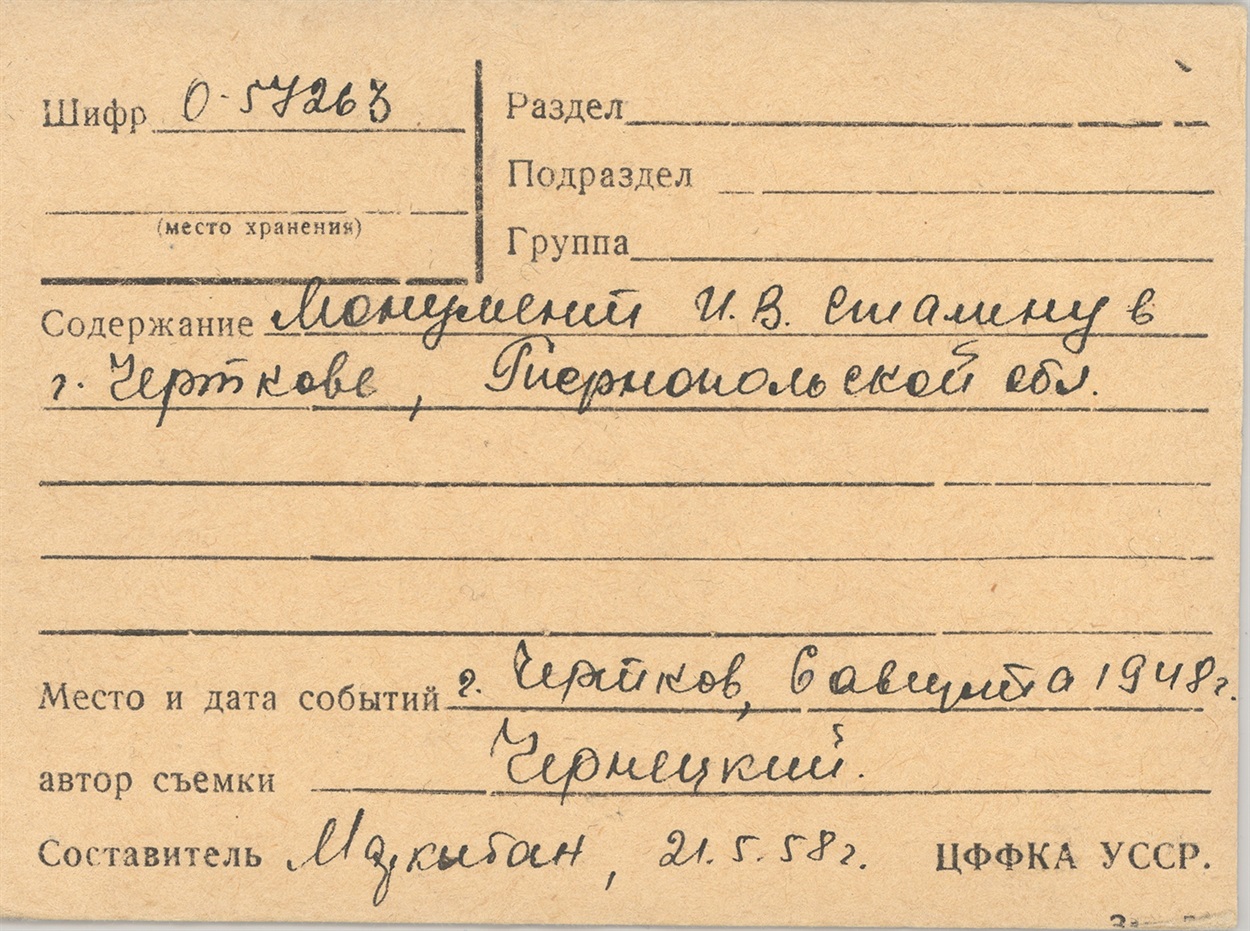 Шифр 0-57263
(место хранения)
Раздел
Подраздел
Группа
Содержание Монумент И.В. Сталину в
г. Черткове, Тернопольской обл.
Место и дата событий г. Чертков, 6 августа 1948г.
автор съемки Чернецкий.
Составитель , 21.5.58г. ЦФФКА УССР.